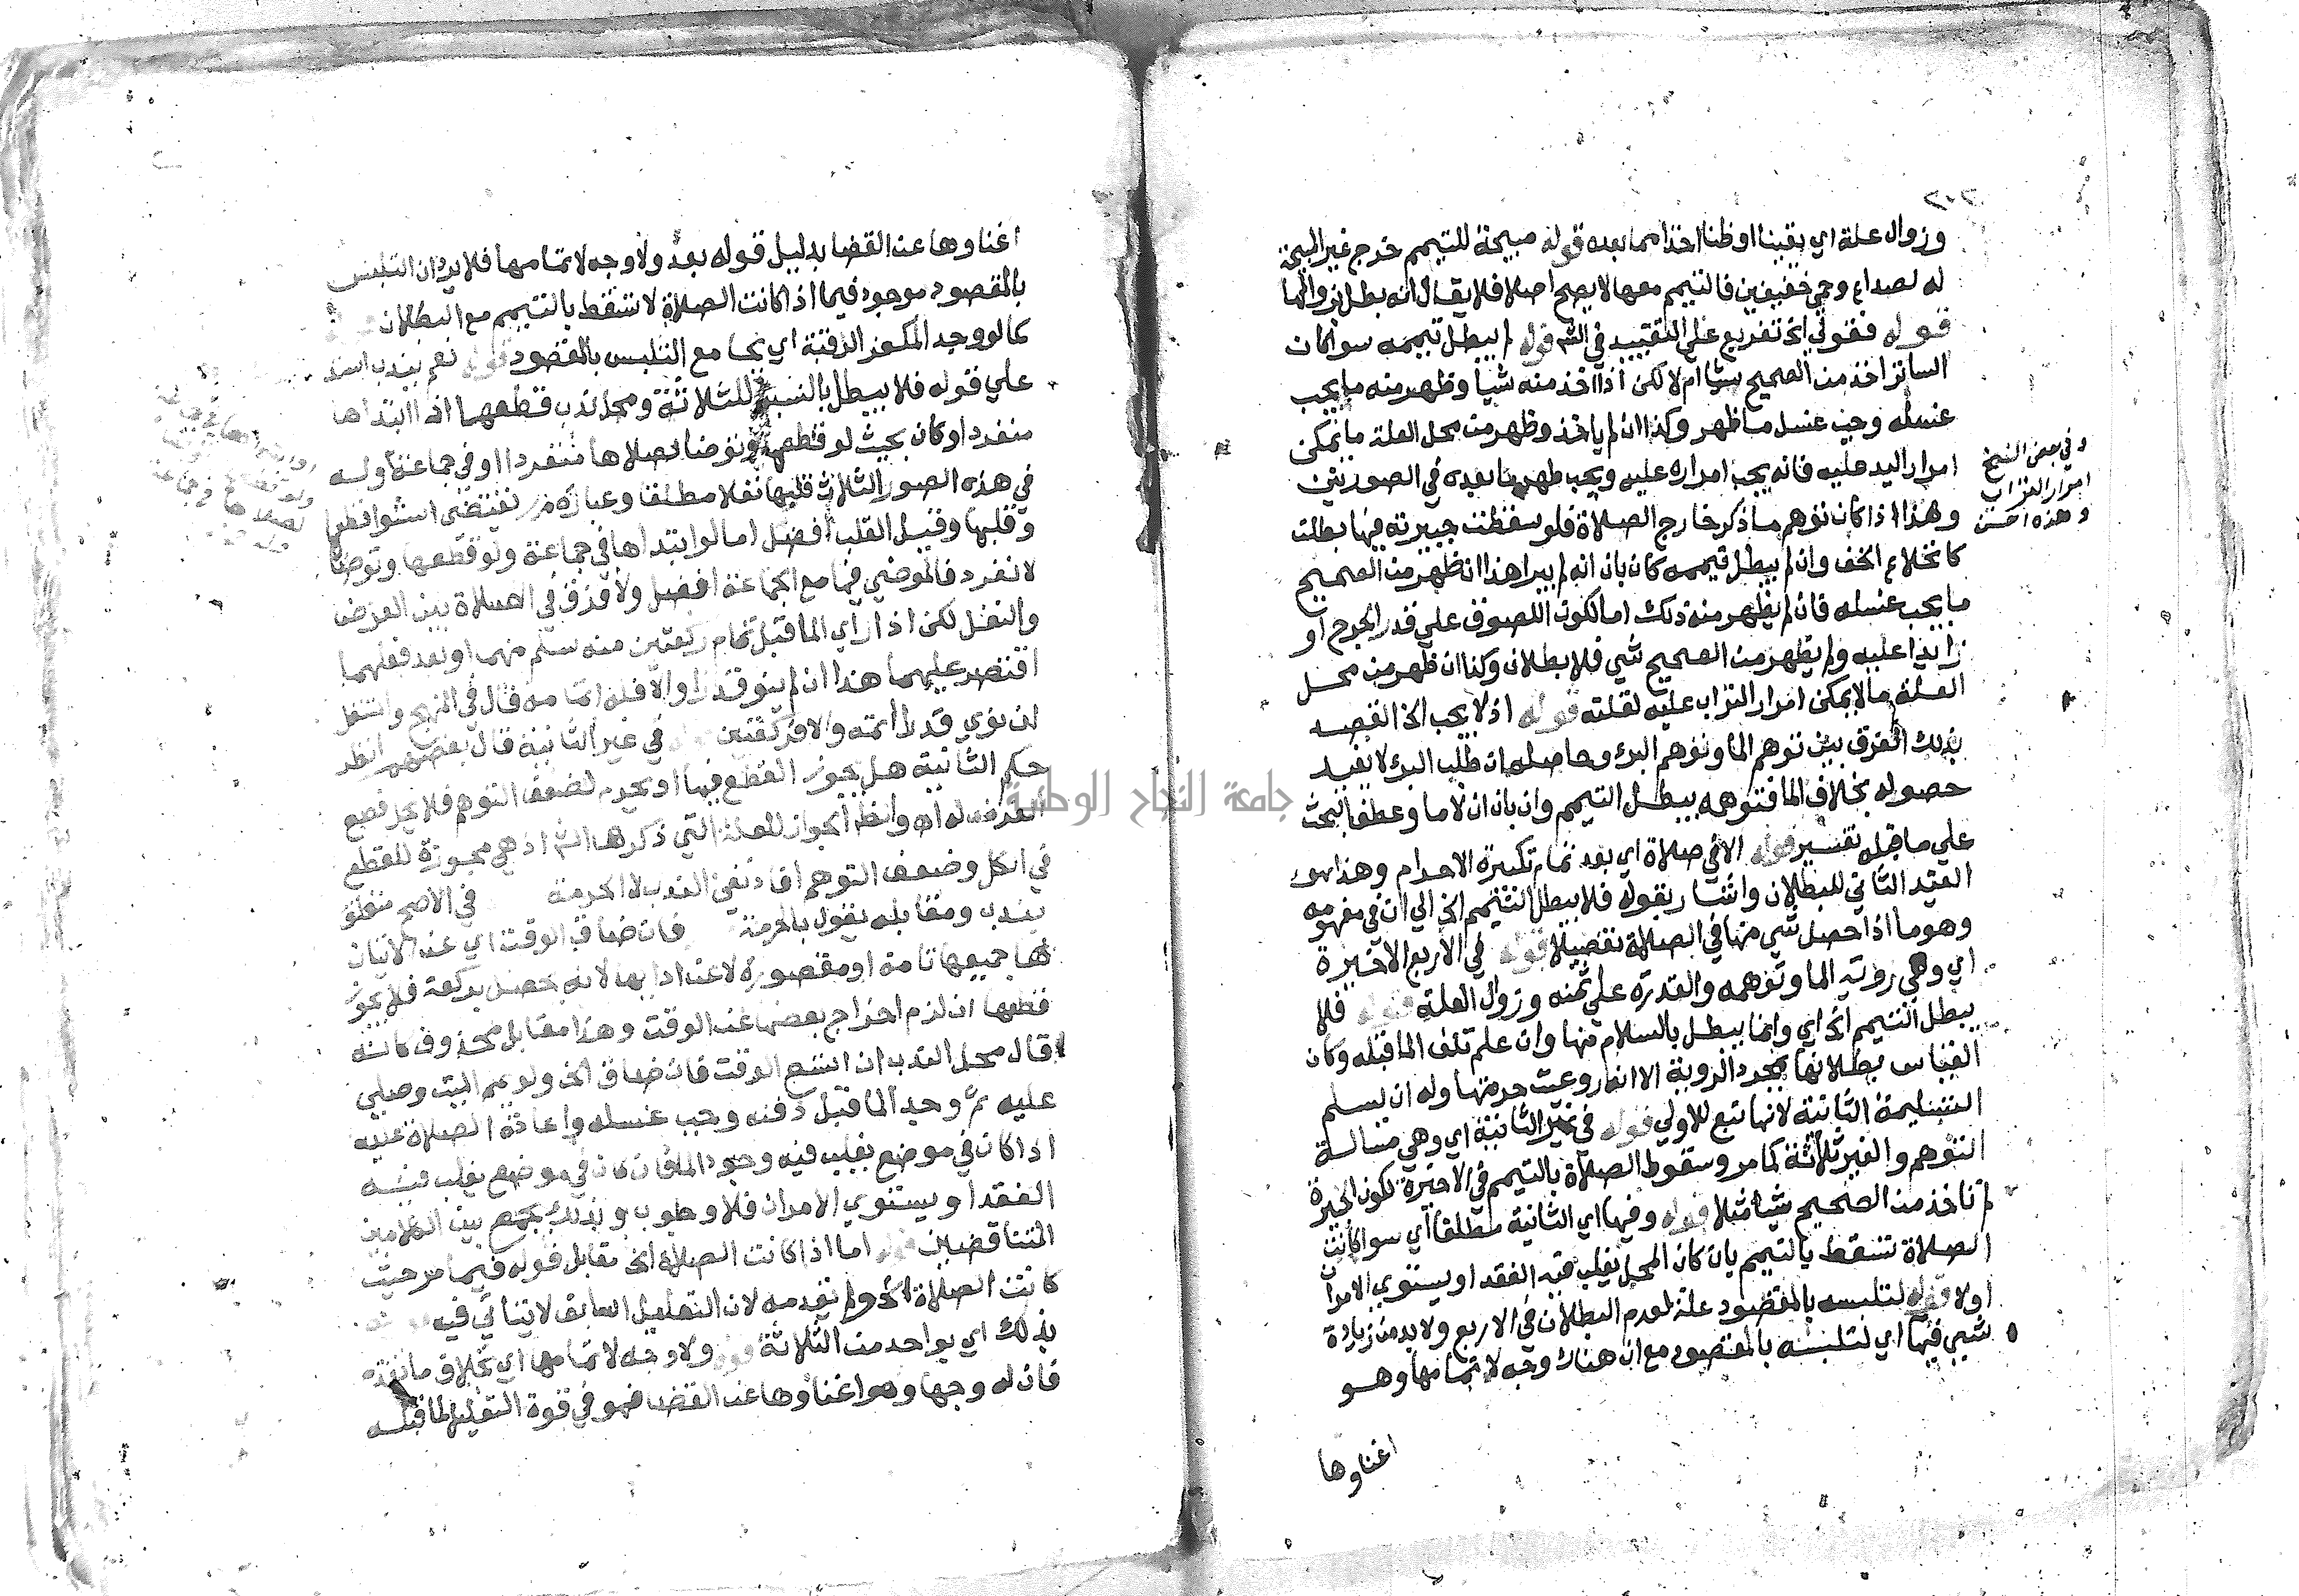 ٢٠٢
وزوال علة اي يقينا اوظنا اخذا مما بعده قوله مبيحة للتيمم خرج غير المبيحة
له لصداع وحمي خفيفين فالتيمم معها لا يصح اصلا فلا يقال انه بطل بزوالها
قوله فقولي الخ تفريع علي التقييد في الش قوله لم يبطل تيممه سوا كان
الساتر اخذ من الصحيح شيا ام لا لكن اذا اخذ منه شيا وظهر منه ما يجب
غسله وجب غسل ما ظهر وكذا ان لم ياخذ وظهر من محل العلة ما يمكن
امرار اليد عليه فانه يجب امراره عليه ويجب طهر ما بعده في الصورتين
وهذا اذا كان توهم ما ذكر خارج الصلاة فلو سقطت جبيرته فيها بطلت
كانخلاع الخف وان لم يبطل تيممه كان بان انه لم يبرا هذا ان ظهر من الصحيح
ما يجب غسله فان لم يظهر منه ذلك اما لكون اللصوق علي قدر الجرح او
زائدا عليه ولم يظهر من الصحيح شي فلا بطلان وكذا ان ظهر من محل
العلة ما لا يمكن امرار التراب عليه لقلته قوله اذ لا يجب الخ القصد
بذلك الفرق بين توهم الما وتوهم البرء وحاصله ان طلب البرء لا يفيد
حصوله بخلاف الما فتوهمه يبطل التيمم وان بان ان لا ما وعطف البحث
علي ما قبله تفسير قوله الا في صلاة اي بعد تمام تكبيرة الاحرام وهذا هو
القيد الثاني للبطلان واشار بقوله فلا يبطل التيمم الخ الي ان في مفهومه
وهو ما اذا حصل شي منها في الصلاة تفصيلا قوله في الاربع الاخيرة
اي وهي رؤية الما وتوهمه والقدرة علي ثمنه وزوال العلة قوله فلا
يبطل التيمم الخ اي وانما يبطل بالسلام منها وان علم تلف الما قبله وكان
القياس بطلانها بمجرد الروية الا انه روعيت حرمتها وله ان يسلم
التسليمة الثانية لانها تبع للاولي قوله في غير الثانية اي وهي مسالة
التوهم والغير ثلاثة كما مر وسقوط الصلاة بالتيمم في الاخيرة لكون الجبيرة
لم تاخذ من الصحيح شيا مثلا قوله وفيها اي الثانية مطلقا اي سوا كانت
الصلاة تسقط بالتيمم بان كان المحل يغلب فيه الفقد او يستوي الامران
اولا قوله لتلبسه بالمقصود علة لعدم البطلان في الاربع ولا بد من زيادة
شيي فيها اي لتلبسه بالمقصود مع ان هناك وجه لاتمامها وهو
اغناوها
وفي بعض النسخ
امرار التراب
وهذه احسن
اغناوها عن القضا بدليل قوله بعد ولا وجه لاتمامها فلا يرد ان التلبس
بالمقصود موجود فيما اذا كانت الصلاة لا تسقط بالتيمم مع البطلان
كما لو وجد المكفر الرقبة اي بجامع التلبس بالمقصود قوله نعم يندب استد
علي قوله فلا يبطل بالنسبة للثلاثة ومحل ندب قطعها اذا ابتداها
منفردا وكان بحيث لو قطعها وتوضا لصلاها منفردا او في جماعة وله
في هذه الصور الثلاث قلبها نفلا مطلقا وعبارة م ر تقتضي استوا قطعها
وقلبها وقيل القلب افضل اما لو ابتداها في جماعة ولو قطعها وتوضا
لانفرد فالمضي فيها مع الجماعة افضل ولا فرق في الصلاة بين الفرض
والنفل لكن اذا راي الما قبل تمام ركعتين منه سلم منهما او بعد فعلهما
اقتصر عليهما هذا ان لم ينو قدرا والا فله اتمامه قال في المنهج والمتنفل
ان نوي قدرا اتمه والا فركعتين قوله في غير الثانية قال بعضهم انظر
حكم الثانية هل يجوز القطع فيها او يحرم لضعف التوهم فلا يجوز قطع
الفرض له اه وانظر الجواز للعلة التي ذكرها الش اذ هي مجوزة للقطع
في الكل وضعف التوهم افاد نفي الندب لا الحرمة في الاصح متعلق
بيندب ومقابله يقول بالحرمة فان ضاق الوقت اي عن الاتيان
بها جميعها تامة او مقصورة لا عن ادايها لانه يحصل بركعة فلا يجوز
قطعها ان لزم اخراج بعضها عن الوقت وهذا مقابل محذوف كانه
قال محل الندب ان اتسع الوقت فان ضاق الخ ولو يمم الميت وصلي
عليه ثم وجد الما قبل دفنه وجب غسله واعادة الصلاة عليه
اذا كان في موضع يغلب فيه وجود الما فان كان في موضع يغلب فيه
الفقد او يستوي الامران فلا وجوب وبذلك يجمع بين الكلامين
المتناقضين قوله اما اذا كانت الصلاة الخ مقابل قوله فيما مر حيث
كانت الصلاة الخ ولم يقدمه لان التعليل السابق لا يتاتي فيه
بذلك اي بواحد من الثلاثة قوله ولا وجه لاتمامها اي بخلاف ما تقدم
فان له وجها وهو اغناوها عن القضا فهو في قوة التعليل لما قبله
جامعة النجاح الوطنية